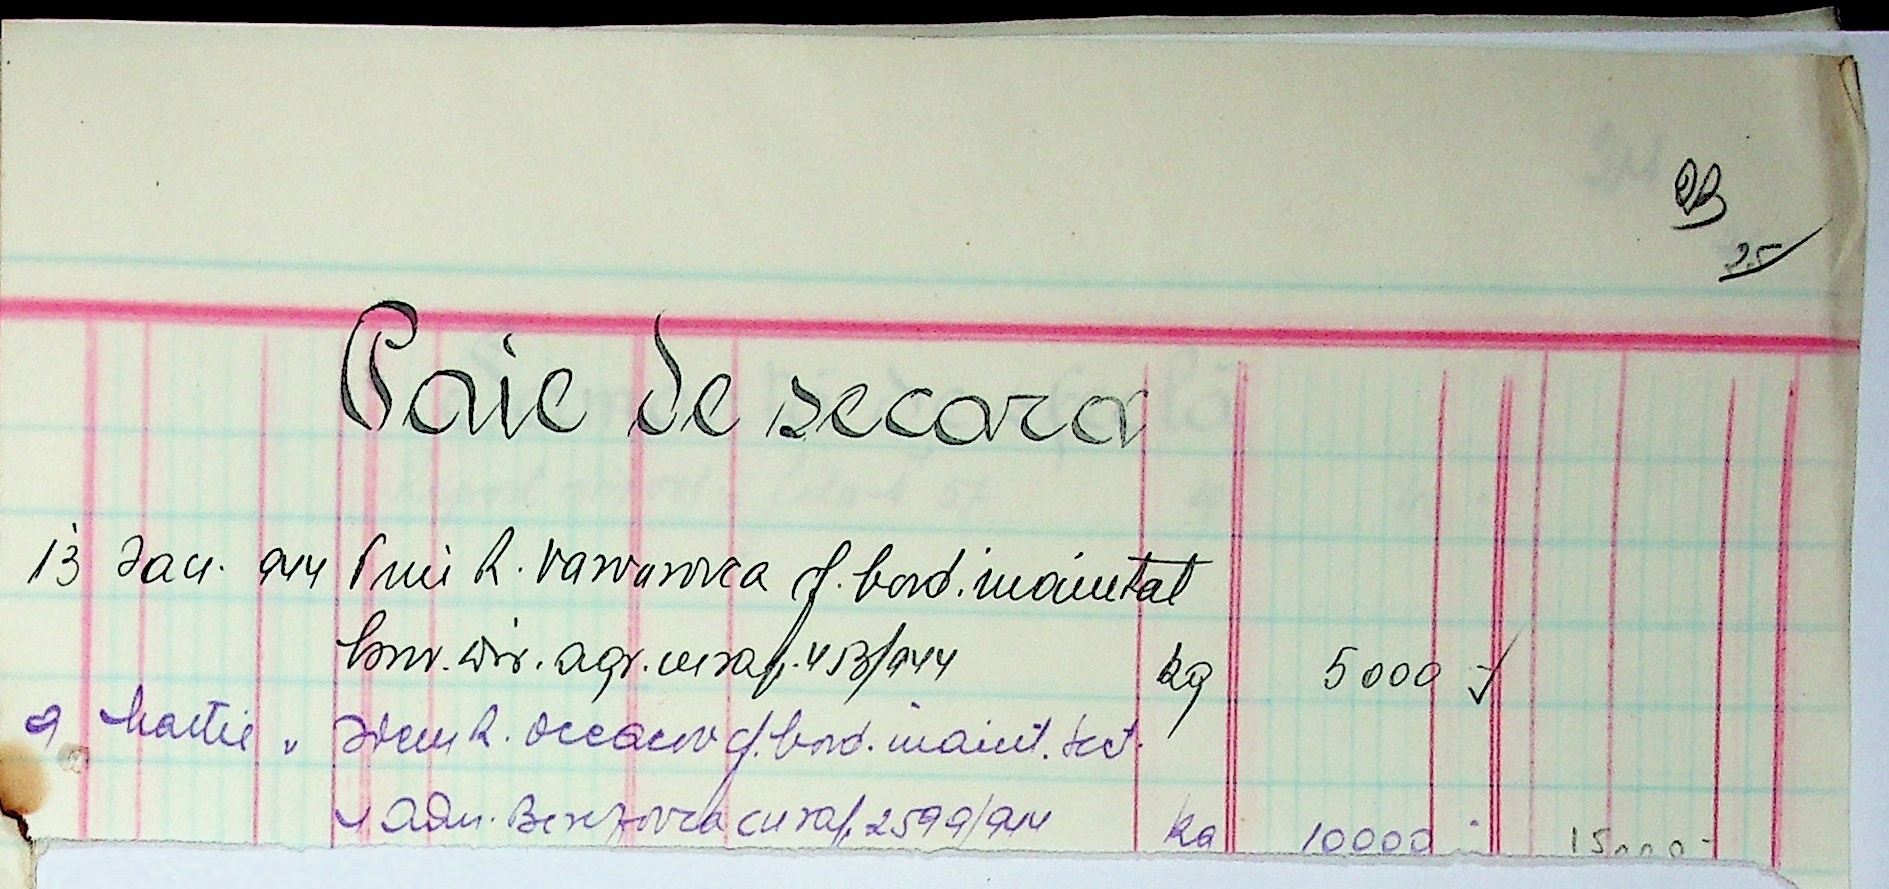 25
Paie de secara
13 Ian. 944 Prim R. Varvarovca cf. bord. inaintat
Serv. Dir. agr. cu rap. 453/944 kg 5000
9 Martie " Idem R. Oceacov cf. bord. inaint. Sect.
adm. Berezovca cu rap. 2599/944 kg 10000